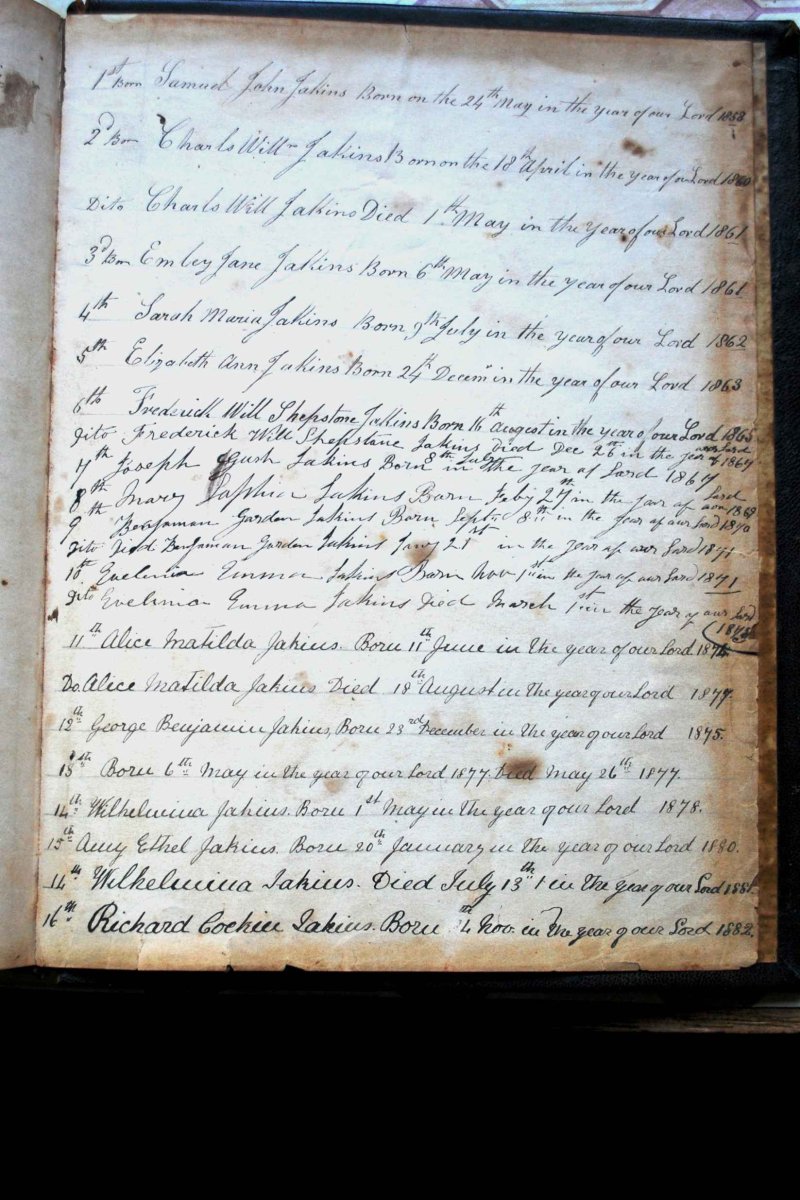 1st Born Samuel John Jakins Born on the 24th May in the year of our Lord 1858
2d Born Charls Willm Jakins Born on the 18th April in the year of our Lord 1860
Dito Charls Will Jakins Died 1th May in the year of our Lord 1861
3d Born Emley Jane Jakins Born 6th May in the year of our Lord 1861
4th Sarah Maria Jakins Born 9th July in the year of our Lord 1862
5th Elizabeth Ann Jakins Born 24th Decemr in the year of our Lord 1863
6th Frederick Will Shepstone Jakins Born 16th August in the year of our Lord 1865
Dito Frederick Will Shepstone Jakins Died Dec 26th in the year of our Lord 1867
7th Joseph Gush Jakins Born 8th July in the year of Lord 1867
8th Mary Saphia Jakins Born Feby 27th in the year of our Lord 1869
9th Benjaman Gordon Jakins Born Septr 8th in the year of our Lord 1870
Dito Died Benjaman Gordon Jakins Jany 21st in the year of our Lord 1871
10th Evelinia Emma Jakins Born Nov 1st in the year of our Lord 1871
Dito Evelinia Emma Jakins Died March 1st in the year of our Lord
11th Alice Matilda Jakins. Born 11th June in the year of our Lord 1874.
Do. Alice Matilda Jakins Died 18th August in the year of our Lord 1877.
12th George Benjamin Jakins, Born 23rd December in the year of our Lord 1875.
13th Born 6th May in the year of our Lord 1877. Died May 26th 1877.
14th Wilhelmina Jakins. Born 1st May in the year of our Lord 1878.
15th Amy Ethel Jakins. Born 20th January in the year of our Lord 1880.
14th Wilhelmina Jakins. Died July 13th in the year of our Lord 1881.
16th Richard Cockin Jakins. Born 4th Nov. in the year of our Lord 1882.